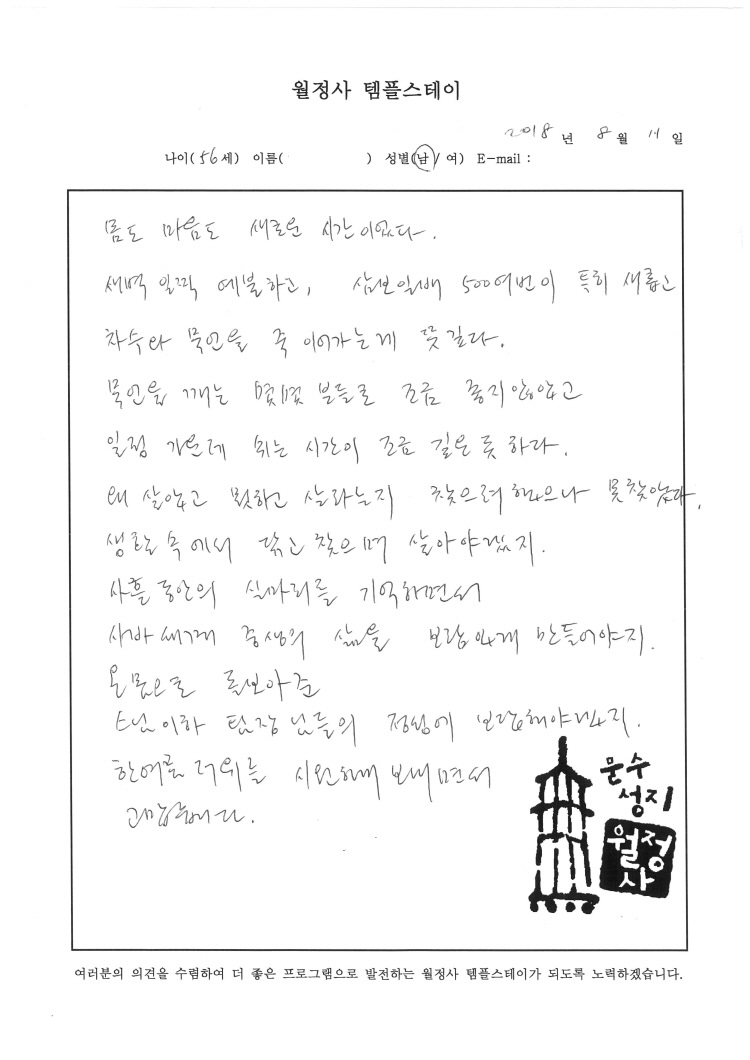 월정사 템플스테이
2018 년 8 월 11 일
나이(56세) 이름( ) 성별(남/여) E-mail :
몸도 마음도 새로운 시간이었다.
새벽 일찍 예불하고, 삼보일배 500여번이 특히 새롭고
차수와 묵언을 죽 이어가는게 뜻깊다.
묵언을 깨는 몇몇 분들로 조금 좋지 않았고
일정 가운데 쉬는 시간이 조금 길은 듯 하다.
왜 살았고 뭣하고 살라는지 찾으려 했으나 못찾았다.
생활 속에서 닦고 찾으며 살아야겠지.
사흘 동안의 실마리를 기억하면서
사바세계 중생의 삶을 보람있게 만들어야지.
온몸으로 돌보아준
스님이하 팀장님들의 정성에 보답해야겠지.
한여름 더위를 시원하게 보내면서
고맙습니다.
문수
성지
월정
사
여러분의 의견을 수렴하여 더 좋은 프로그램으로 발전하는 월정사 템플스테이가 되도록 노력하겠습니다.